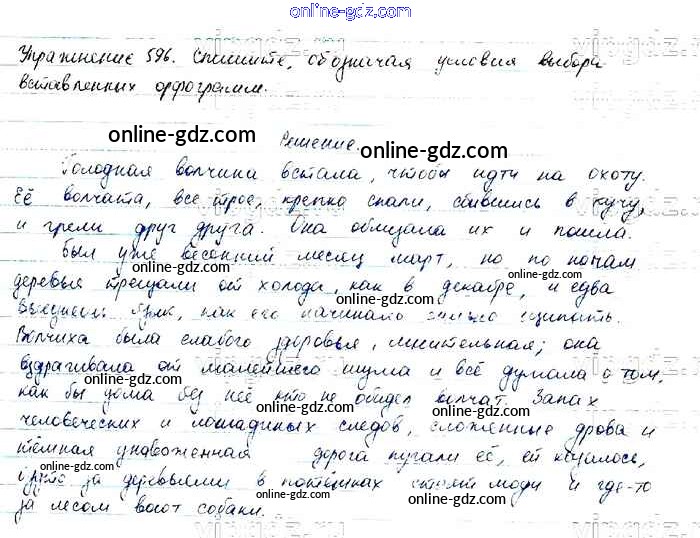 online-gdz.com
Упражнение 596. Спишите, обозначая условия выбора
вставленных орфограмм.
online-gdz.com
Решение.
online-gdz.com
Голодная волчиха встала, чтобы идти на охоту.
Её волчата, все трое, крепко спали, сбившись в кучу,
и грели друг друга. Она облизала их и пошла.
Был уже весенний месяц март, но по ночам
деревья трещали от холода, как в декабре, и едва
высунешь язык, как его начинало сильно щипать.
Волчиха была слабого здоровья, мнительная; она
вздрагивала от малейшего шума и всё думала о том,
как бы дома без неё кто не обидел волчат. Запах
человеческих и лошадиных следов, сложенные дрова и
тёмная унавоженная дорога пугали её, ей казалось,
будто за деревьями в потёмках стоят люди и где-то
за лесом воют собаки.